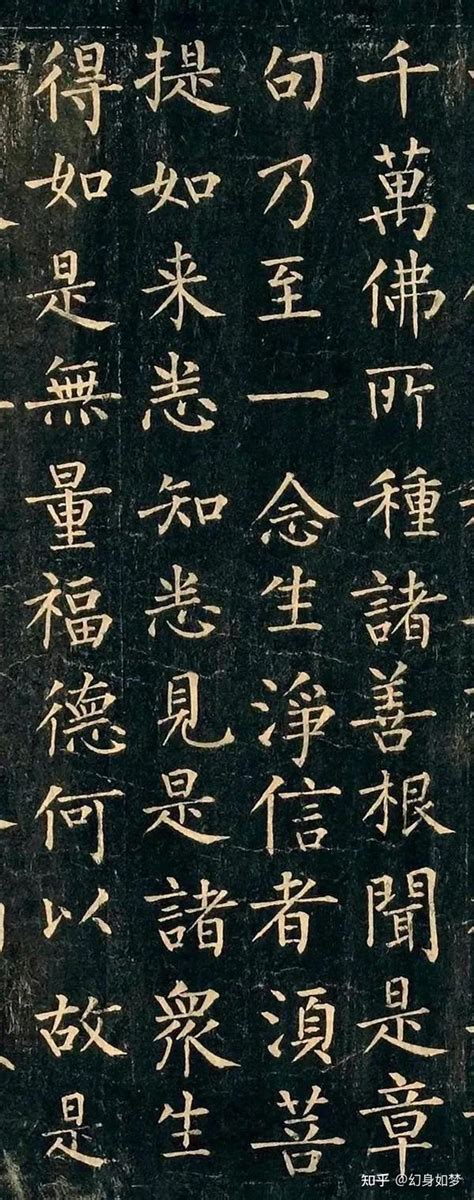 千萬佛所種諸善根聞是章
句乃至一念生淨信者須菩
提如来悉知悉見是諸衆生
得如是無量福德何以故是
知乎 @幻身如梦